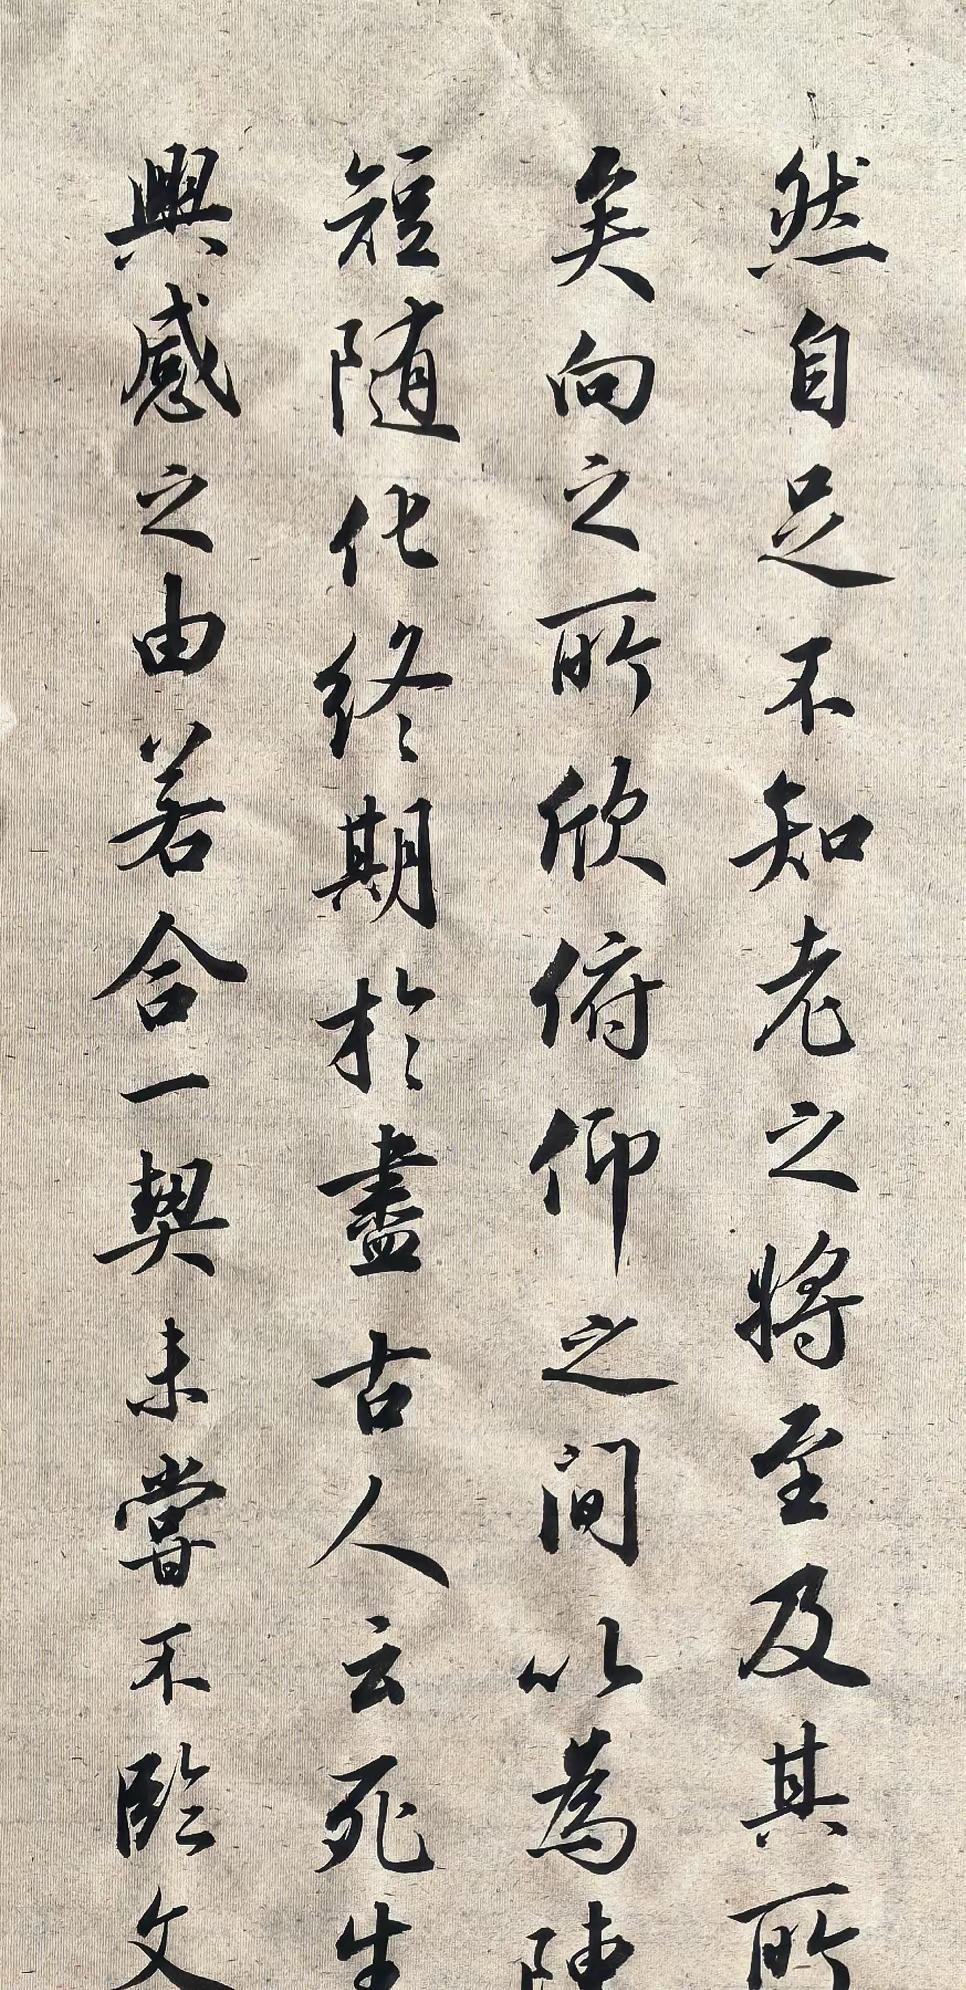 然自足不知老之將至及其所
矣向之所欣俯仰之间以為陳
短随化終期於盡古人云死生
興感之由若合一契未嘗不臨文